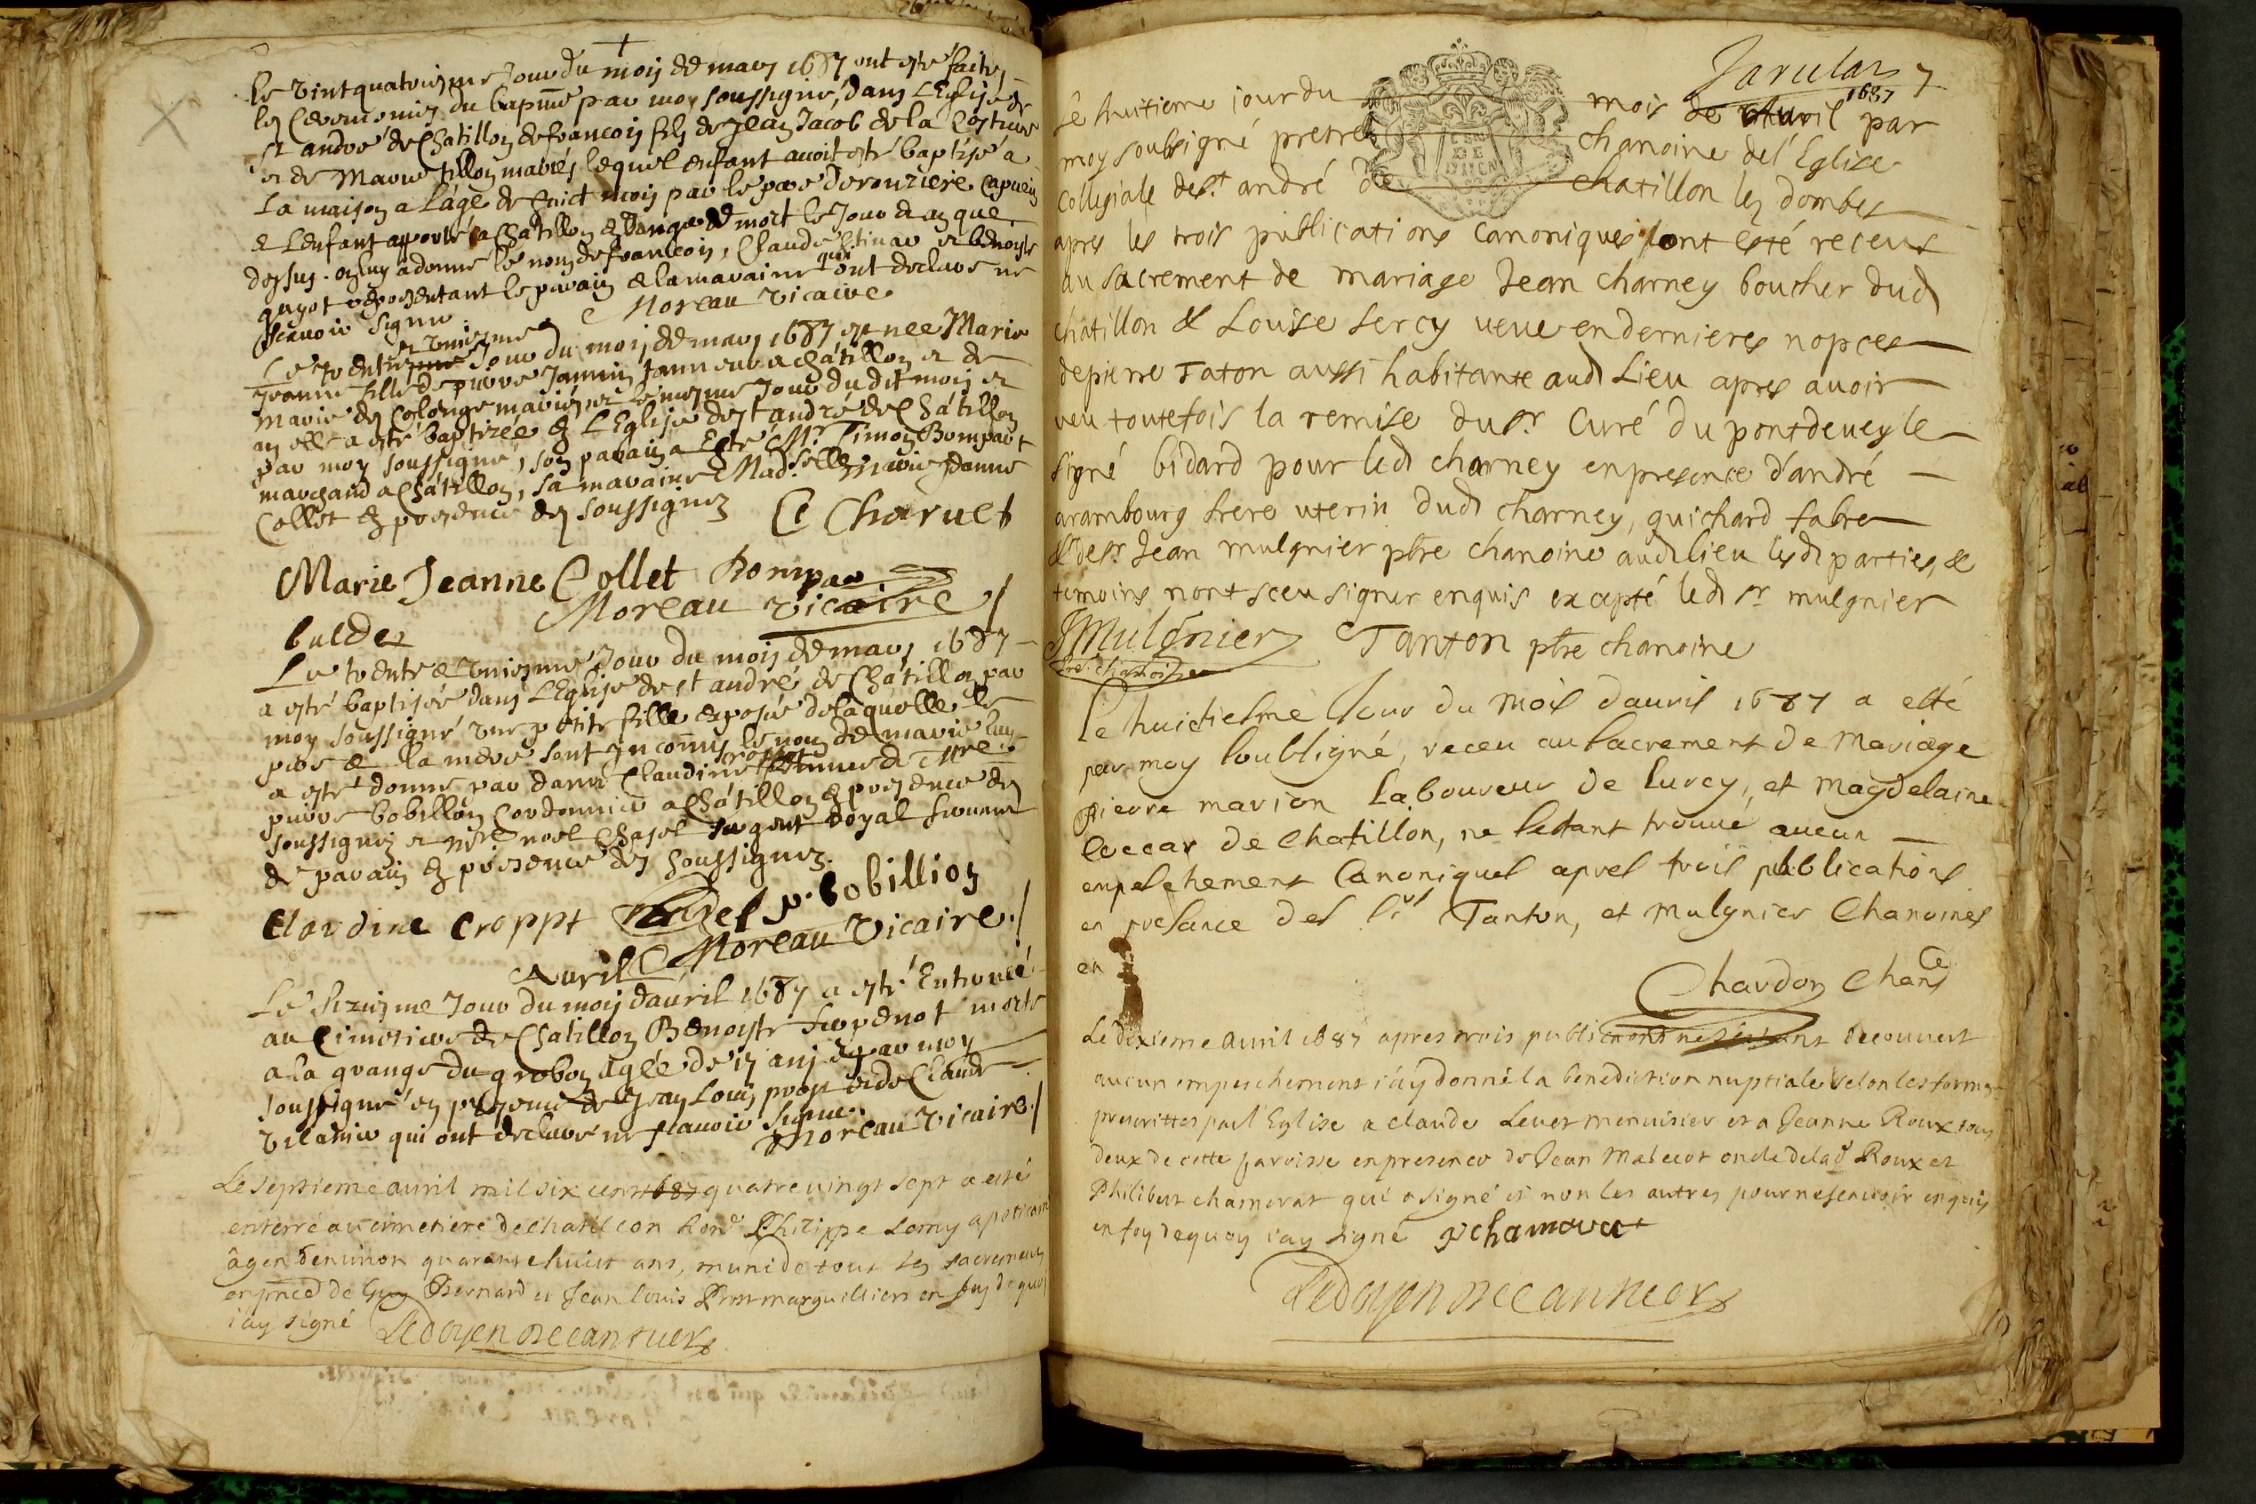 Le vintquatriesme Jour du moij de mars 1687 ont esté faites
les Ceremonies du baptme par moy soussigné, dans L'Eglise de
st andre de Chatillon de francois fils de Jean Jacob de la
et de Marie tillon mariés lequel enfant avoit esté baptisé a
La maison a L'age de huict mois par le pere Capucin
& L'enfant apporté a Chatillon danger de mort le Jour & an que
dessus. on luy a donné le nom de francois, Claude & benoiste
guyot representant le parain & la maraine qui ont declare ne
scavoir signer. Moreau vicaire
Le trente & uniesme Jour du mois de mars 1687 est née Marie
Jeanne fille de pierre Jannin tanneur a Chatillon et de
Marie de Colonge mariés et le mesme Jour du dit mois et
an elle a esté baptizée en L'Eglise de st andré de Chatillon
par moy soussigné, son parain a Esté Mr. Timon Bompart
marchand a Chatillon, sa maraine Madselle marie Jeanne
Collet en presence des soussignez C Charuet
Marie Jeanne Collet Bompar
Moreau vicaire
bulder
Le trente & uniesme Jour du mois de mars 1687
a esté baptisée dans L'Eglise de st andré de Chatillon par
moy soussigné une petite fille exposée de laquelle le
pere & la mere sont Inconnus le nom de marie luy
a esté donné par dame Claudine croppet femme de Mre.
pierre bobillon Cordonnier a Chatillon en presence des
soussignez et Mre noel Chasel sergent royal servant
de parain en presence des soussignez.
Clavdine croppt Chasel p. bobillion
Moreau vicaire
Avril
Le sixiesme Jour du mois d'avril 1687 a esté Enterrée
au Cimetiere de Chatillon Benoiste morte
a la grange du grobon agée de ans & par moy
soussigné en presence de Jean Louis prost & de Claude
qui ont declaré ne scavoir signer.
Moreau vicaire
Le septieme avril mil six cent 687 quatre vingt sept a esté
enterré au cimetiere de chatillon hone Philippe Lomy apoticaire
agé denviron quarante huict ans, muni de tout les sacremens
en pnce de Guy Bernard et Jean louis Prost marguilliers en foy de quoy
i'ay signé Ledoyen
Javulas 7
Le huitieme iour du mois de Avril 1687 par
moy soubsigné pretre chanoine de l'Eglise
Collegiale de st andré de chatillon les dombes
apres les trois publications canoniques ont esté receus
au sacrement de mariage Jean charney boucher dud
chatillon & Louise sercy veuve en dernieres nopces
de pierre Taton aussi habitante aud Lieu apres avoir
veu toutefois la remise du sr. Curé du pontdeveyle
signé bidard pour led charney en presence d'andré
arambourg frere uterin dud charney, guichard fabre
& de sr Jean mulgnier pbre chanoine aud lieu lesd parties, &
temoins nont sceu signer enquis excepté led sr mulgnier
J Mulgnier Tanton pbre chanoine
pbre. chanoine
Le huictiesme Jour du mois davril 1687 a esté
par moy soubsigné, receu au sacrement de Mariage
Pierre marion Laboureur de lurcy, et Magdelaine
luccar de chatillon, ne sestant trouvé aucun
empeschement Canoniques apres trois publications
en presance des srs Tanton, et Mulgnier Chanoines
en
Chardon Chane
Le dixieme avril 1687 apres trois publications ne s'étant découvert
aucun empeschement i'ay donné la benediction nuptiale selon les formes
prescrittes par l'Eglise a claude Levet menuisier et a Jeanne Roux tous
deux de cette parroisse en presence de Jean Malecot oncle de lad Roux et
Philibert chamerat qui a signé et non les autres pour ne scavoir enquis
en foy dequoy i'ay signé P chamerat
Ledoyen